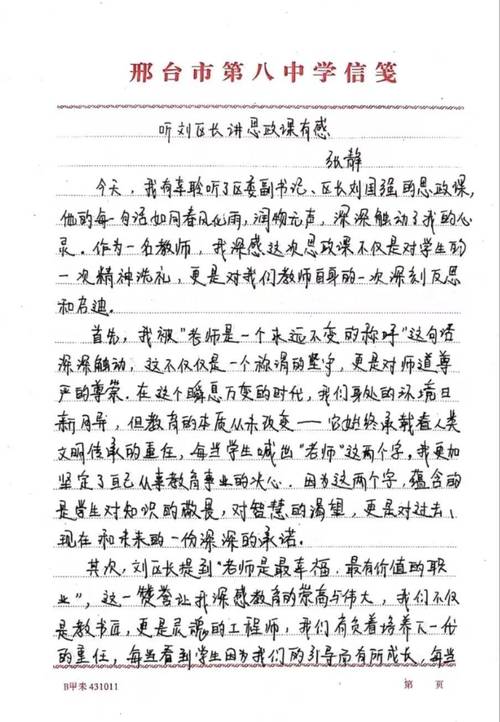 邢台市第八中学信笺
听刘区长讲思政课有感
张静
今天，我有幸聆听了区委副书记、区长刘国强的思政课，
他的每一句话如同春风化雨，润物无声，深深触动了我的心
灵。作为一名教师，我深感这次思政课不仅是对学生的
一次精神洗礼，更是对我们教师自身的一次深刻反思
和启迪。
首先，我被“老师是一个永远不变的称呼”这句话
深深触动，这不仅仅是一个称谓的坚守，更是对师道尊
严的尊崇。在这个瞬息万变的时代，我们身处的环境日
新月异，但教育的本质从未改变——它始终承载着人类
文明传承的重任，每当学生喊出“老师”这两个字，我更加
坚定了自己从事教育事业的决心。因为这两个字，蕴含的
是学生对知识的敬畏，对智慧的渴望，更是对过去、
现在和未来的一份深深的承诺。
其次，刘区长提到“老师是最幸福、最有价值的职
业”，这一赞誉让我深感教育的崇高与伟大，我们不仅
是教书匠，更是灵魂的工程师，我们肩负着培养下一代
的重任，每当看到学生因为我们的引导而有所成长，每当
B甲未 431011
第 页